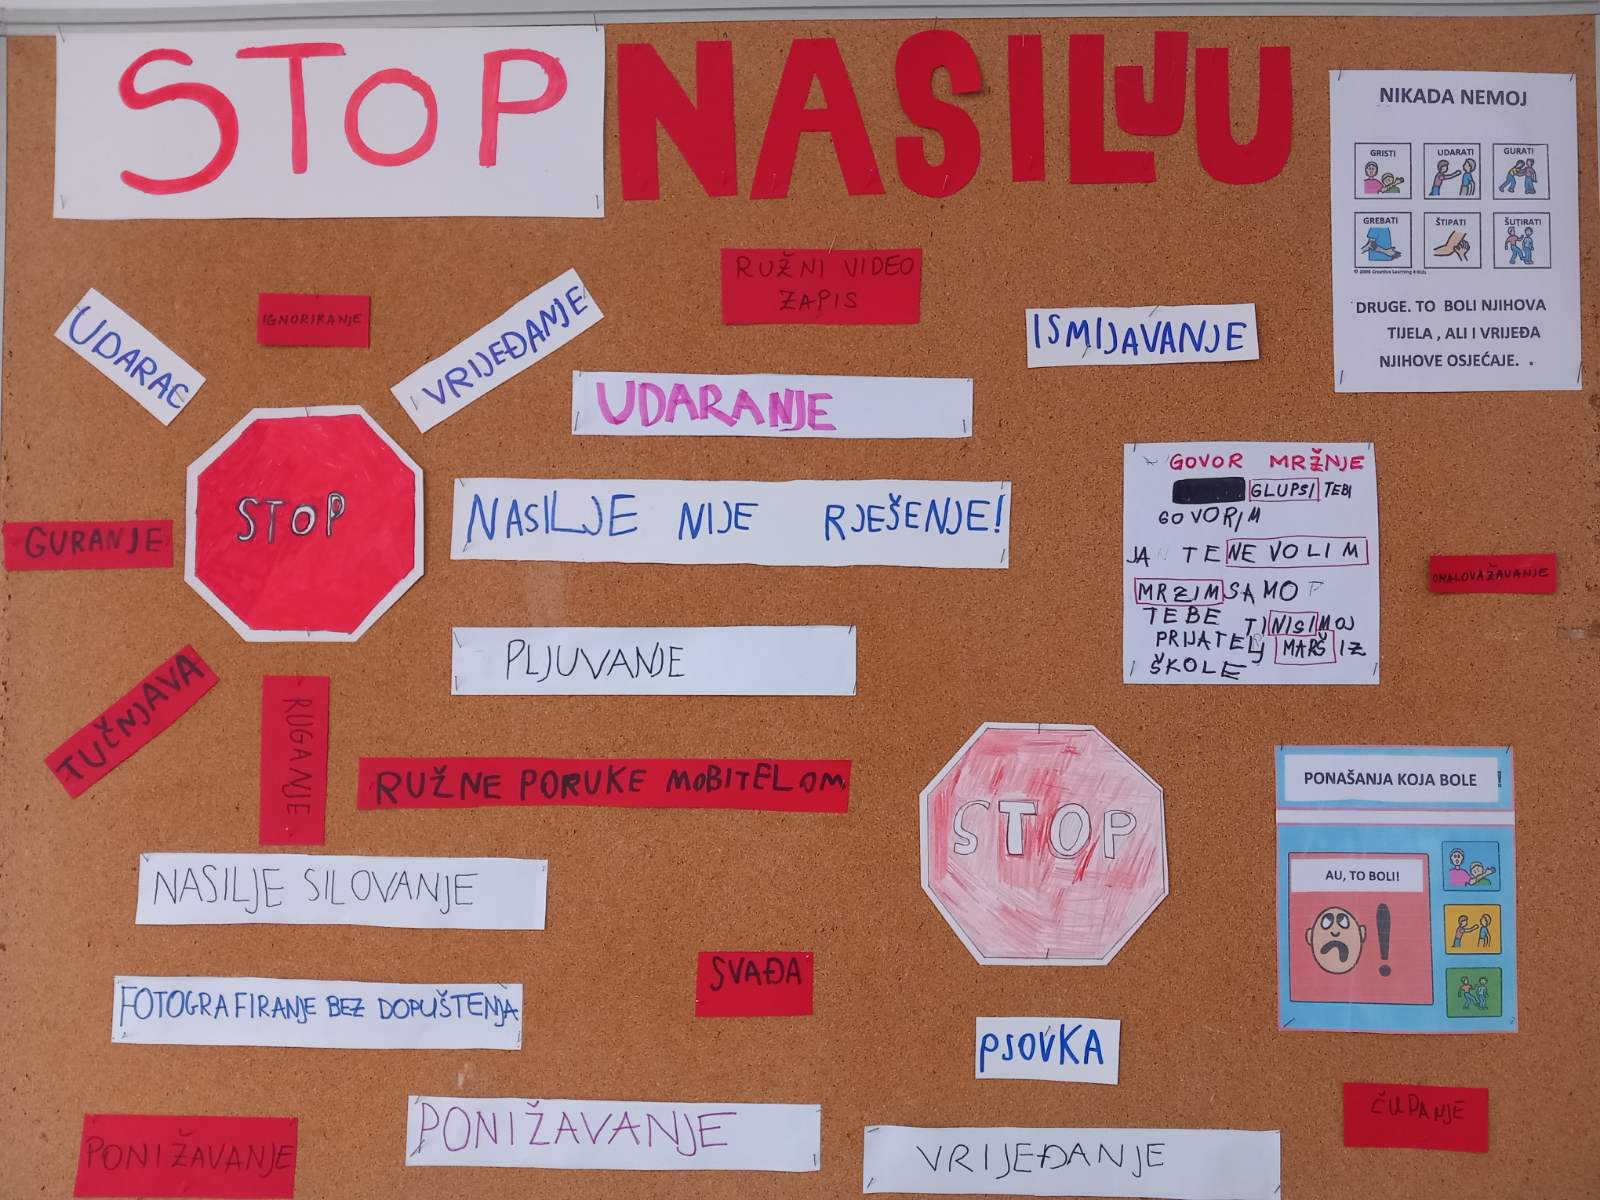 STOP NASILJU
NIKADA NEMOJ
GRISTI UDARATI GURATI
GREBATI ŠTIPATI ŠUTIRATI
© 2006 Creative Learning 4 Kids
DRUGE. TO BOLI NJIHOVA
TIJELA , ALI I VRIJEĐA
NJIHOVE OSJEĆAJE. .
UDARAC
IGNORIRANJE
VRIJEĐANJE
RUŽNI VIDEO
ZAPIS
ISMIJAVANJE
UDARANJE
STOP
GURANJE
NASILJE NIJE RJEŠENJE!
GOVOR MRŽNJE
GLUPSI TEBI
GOVORIM
JA TE NE VOLIM
MRZIM SAMO
TEBE TI NISI MOJ
PRIJATELJ MARŠ IZ
ŠKOLE
OMALOVAŽAVANJE
PLJUVANJE
TUČNJAVA
RUGANJE
RUŽNE PORUKE MOBITELOM
STOP
PONAŠANJA KOJA BOLE !
AU, TO BOLI!!
!
NASILJE SILOVANJE
FOTOGRAFIRANJE BEZ DOPUŠTENJA
SVAĐA
PSOVKA
PONIŽAVANJE
PONIŽAVANJE
VRIJEĐANJE
ČUPANJE